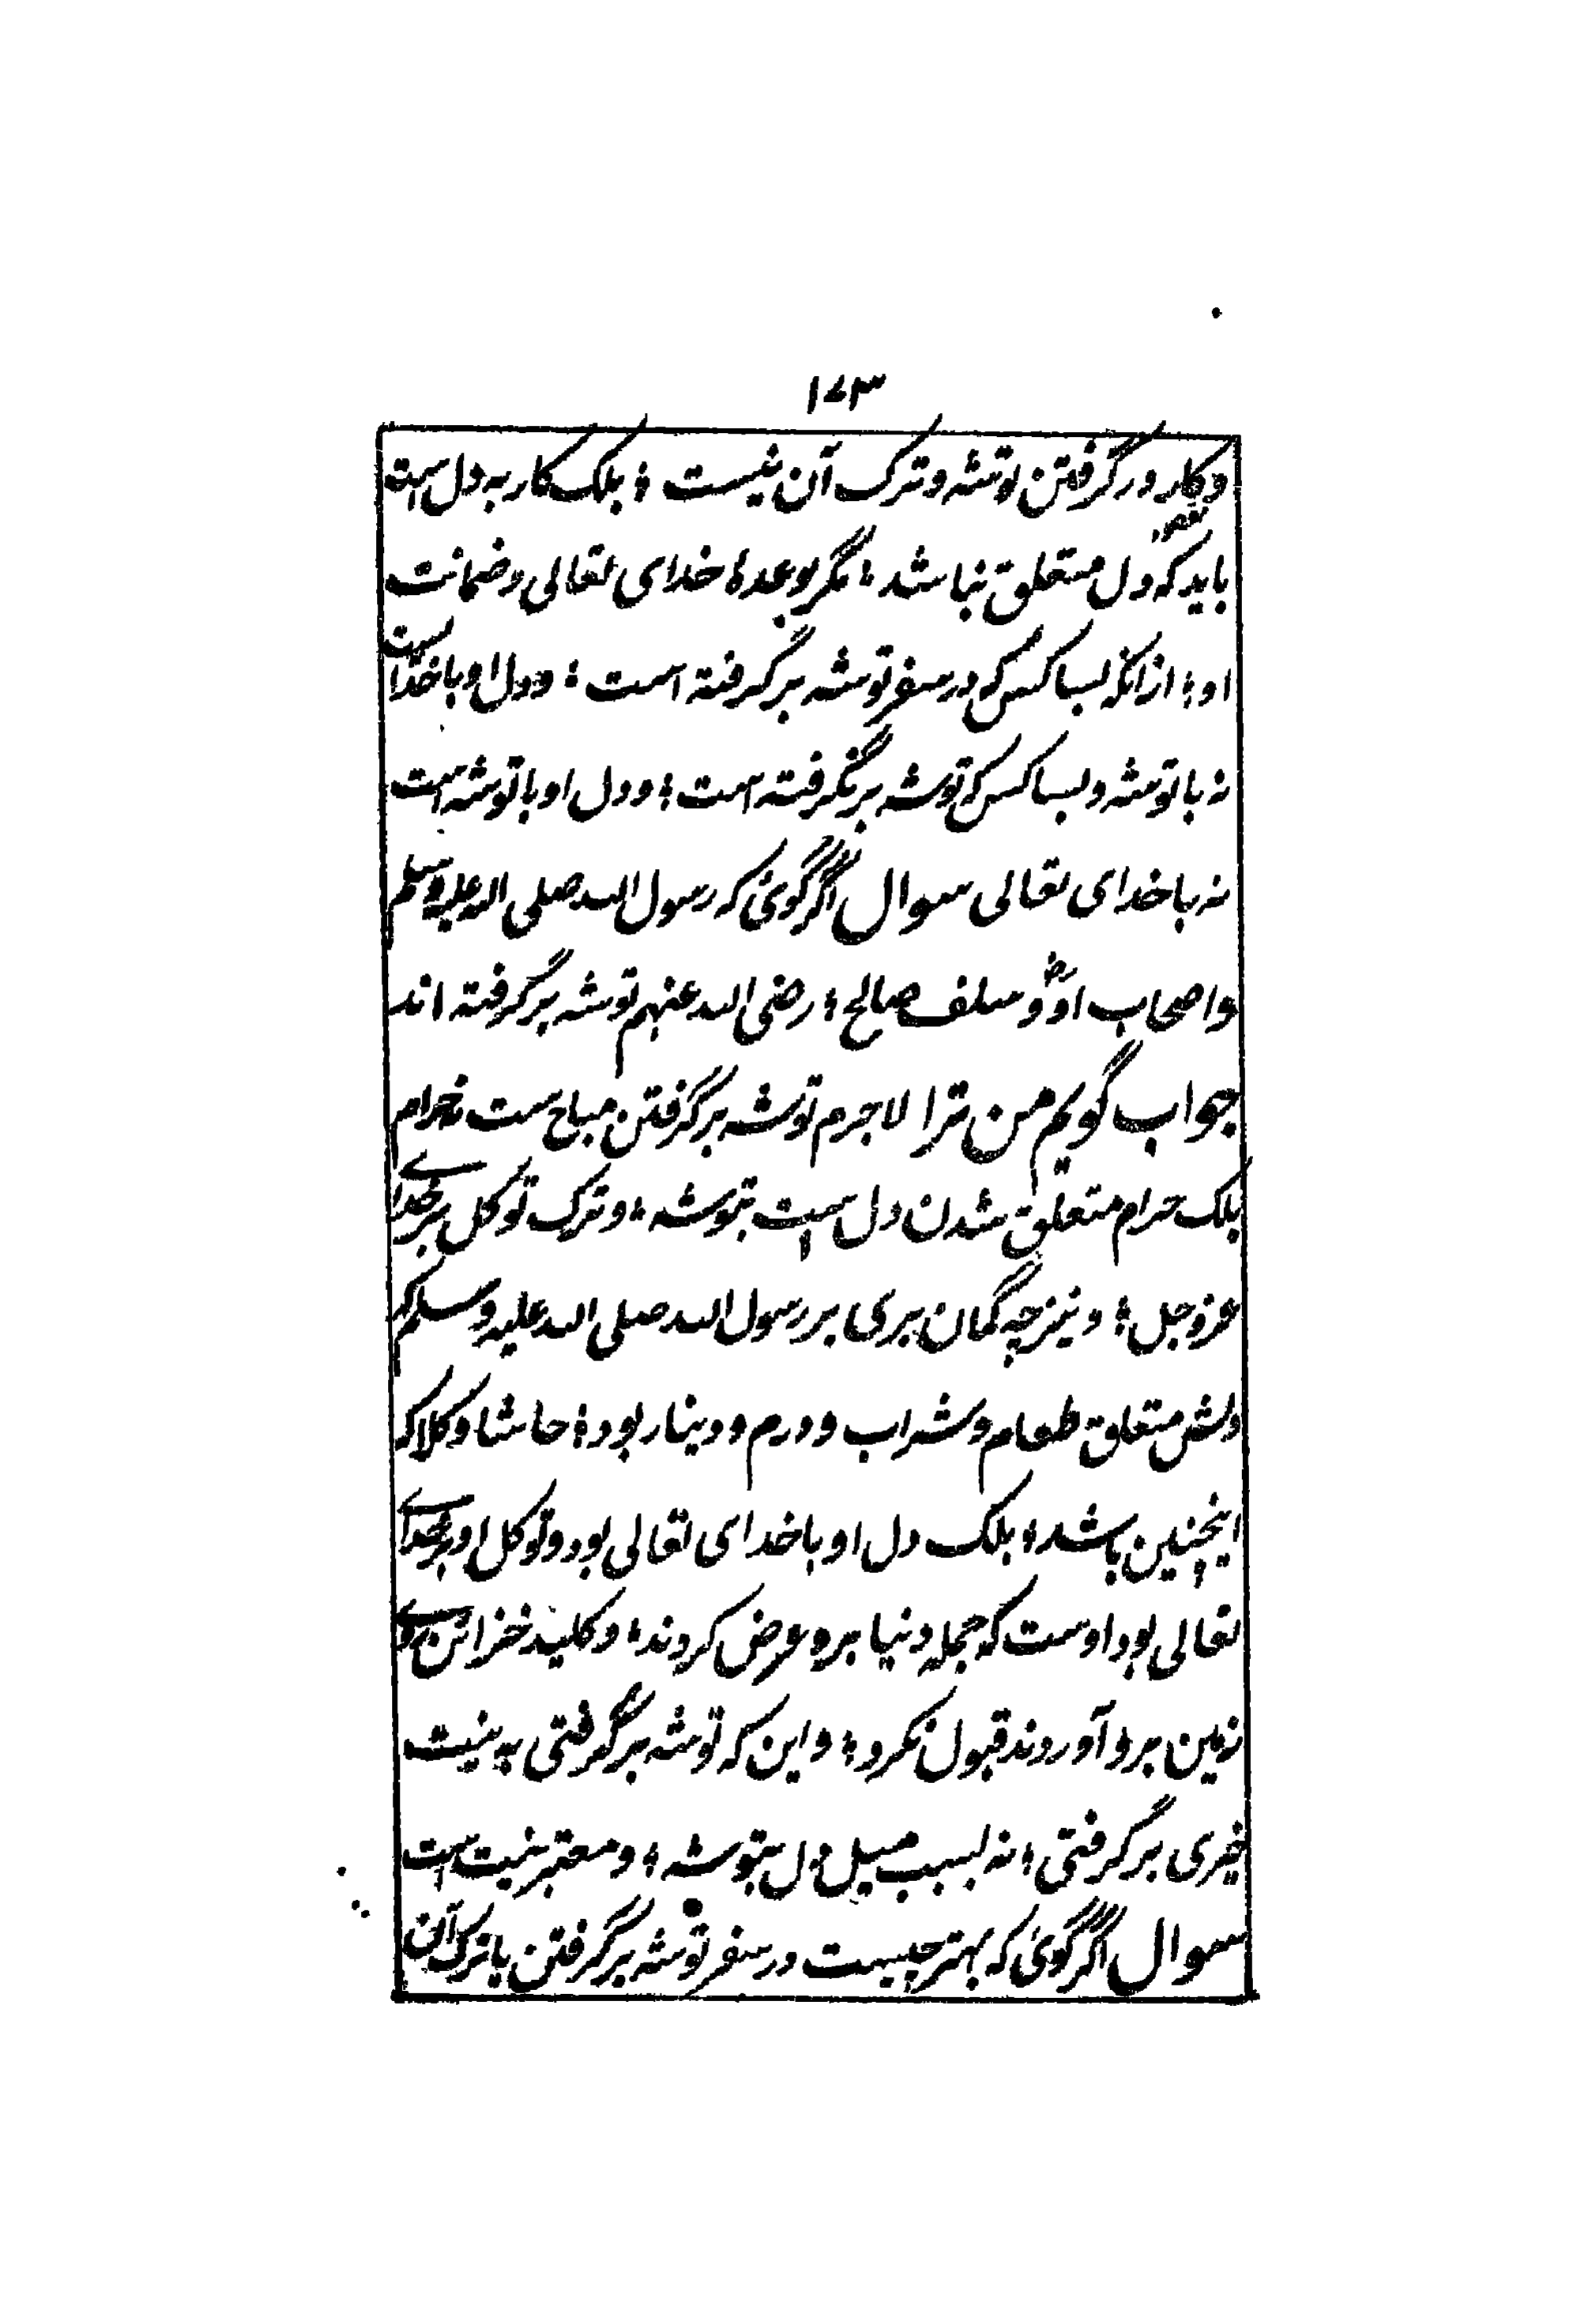 ۱۷۳
وکار در گرفتن توشه وترک آن نیست ؛ بلک کار به دل است
باید که دل متعلق نباشد ؛ مگر بوعدهٔ خدای تعالی وضمانت
او ؛ ازانکه بسا کس که در سفر توشه برگرفته است ؛ ودل او با خداست
نه با توشه وبسا کس که توشه برنگرفته است ؛ ودل او با توشه است
نه با خدای تعالی سوال اگر گوئ که رسول الله صلی الله علیه وسلم
واصحاب او و سلف صالح ؛ رضی الله عنهم توشه برگرفته اند
جواب گویم من ترا لاجرم توشه برگرفتن مباح ست نه حرام
بلک حرام متعلق شدن دل است بتوشه ؛ وترک توکل بر خدای
عزوجل ؛ ونیز چه گمان بری بر رسول الله صلی الله علیه وسلم که
دلش متعلق طعام وشراب ودرم ودینار بود ؛ حاشا وکلا که
اینچنین باشد ؛ بلک دل او با خدای تعالی بود وتوکل او بر خدای
تعالی بود اوست که جمله دنیا برو عرض کردند ؛ وکلید خزائن روی
زمین برو آوردند قبول نکرد ؛ واین که توشه برگرفتی به نیت
خیری برگرفتی ؛ نه بسبب میل دل بتوشه ؛ ومعتبر نیت است
سوال اگر گوئ که بهتر چیست در سفر توشه برگرفتن یا ترک آن